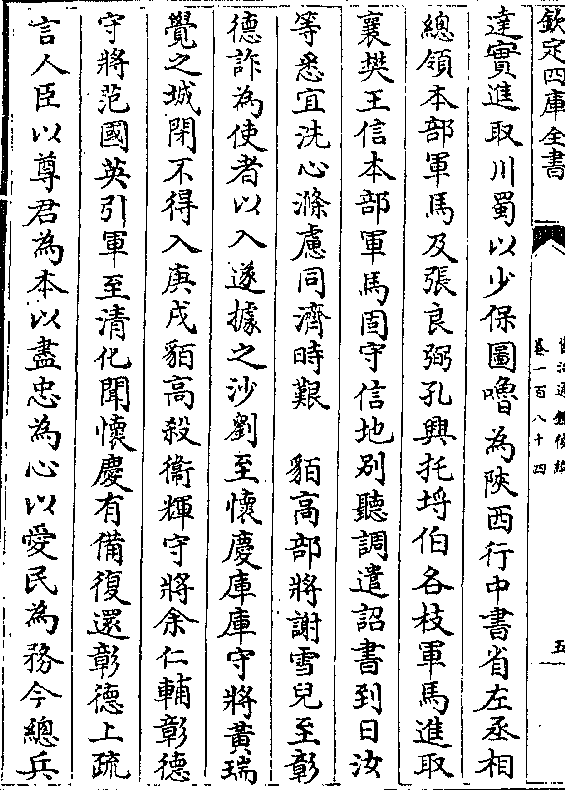 欽定四庫全書
資治通鑑後編
卷一百八十四
五
達實進取川蜀以少保圖嚕為陝西行中書省左丞相
總領本部軍馬及張良弼孔興托埒伯各枝軍馬進取
襄樊王信本部軍馬固守信地别聽調遣詔書到日汝
等悉宜洗心滌慮同濟時艱　貊高部將謝雪兒至彰
德詐為使者以入遂據之沙劉至懷慶庫庫守將黃瑞
覺之城閉不得入庚戌貊高殺衞輝守將余仁輔彰德
守將范國英引軍至清化聞懷慶有備復還彰德上疏
言人臣以尊君為本以盡忠為心以愛民為務今總兵